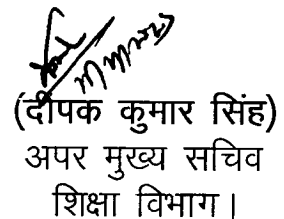 (दीपक कुमार सिंह)
अपर मुख्य सचिव
शिक्षा विभाग।